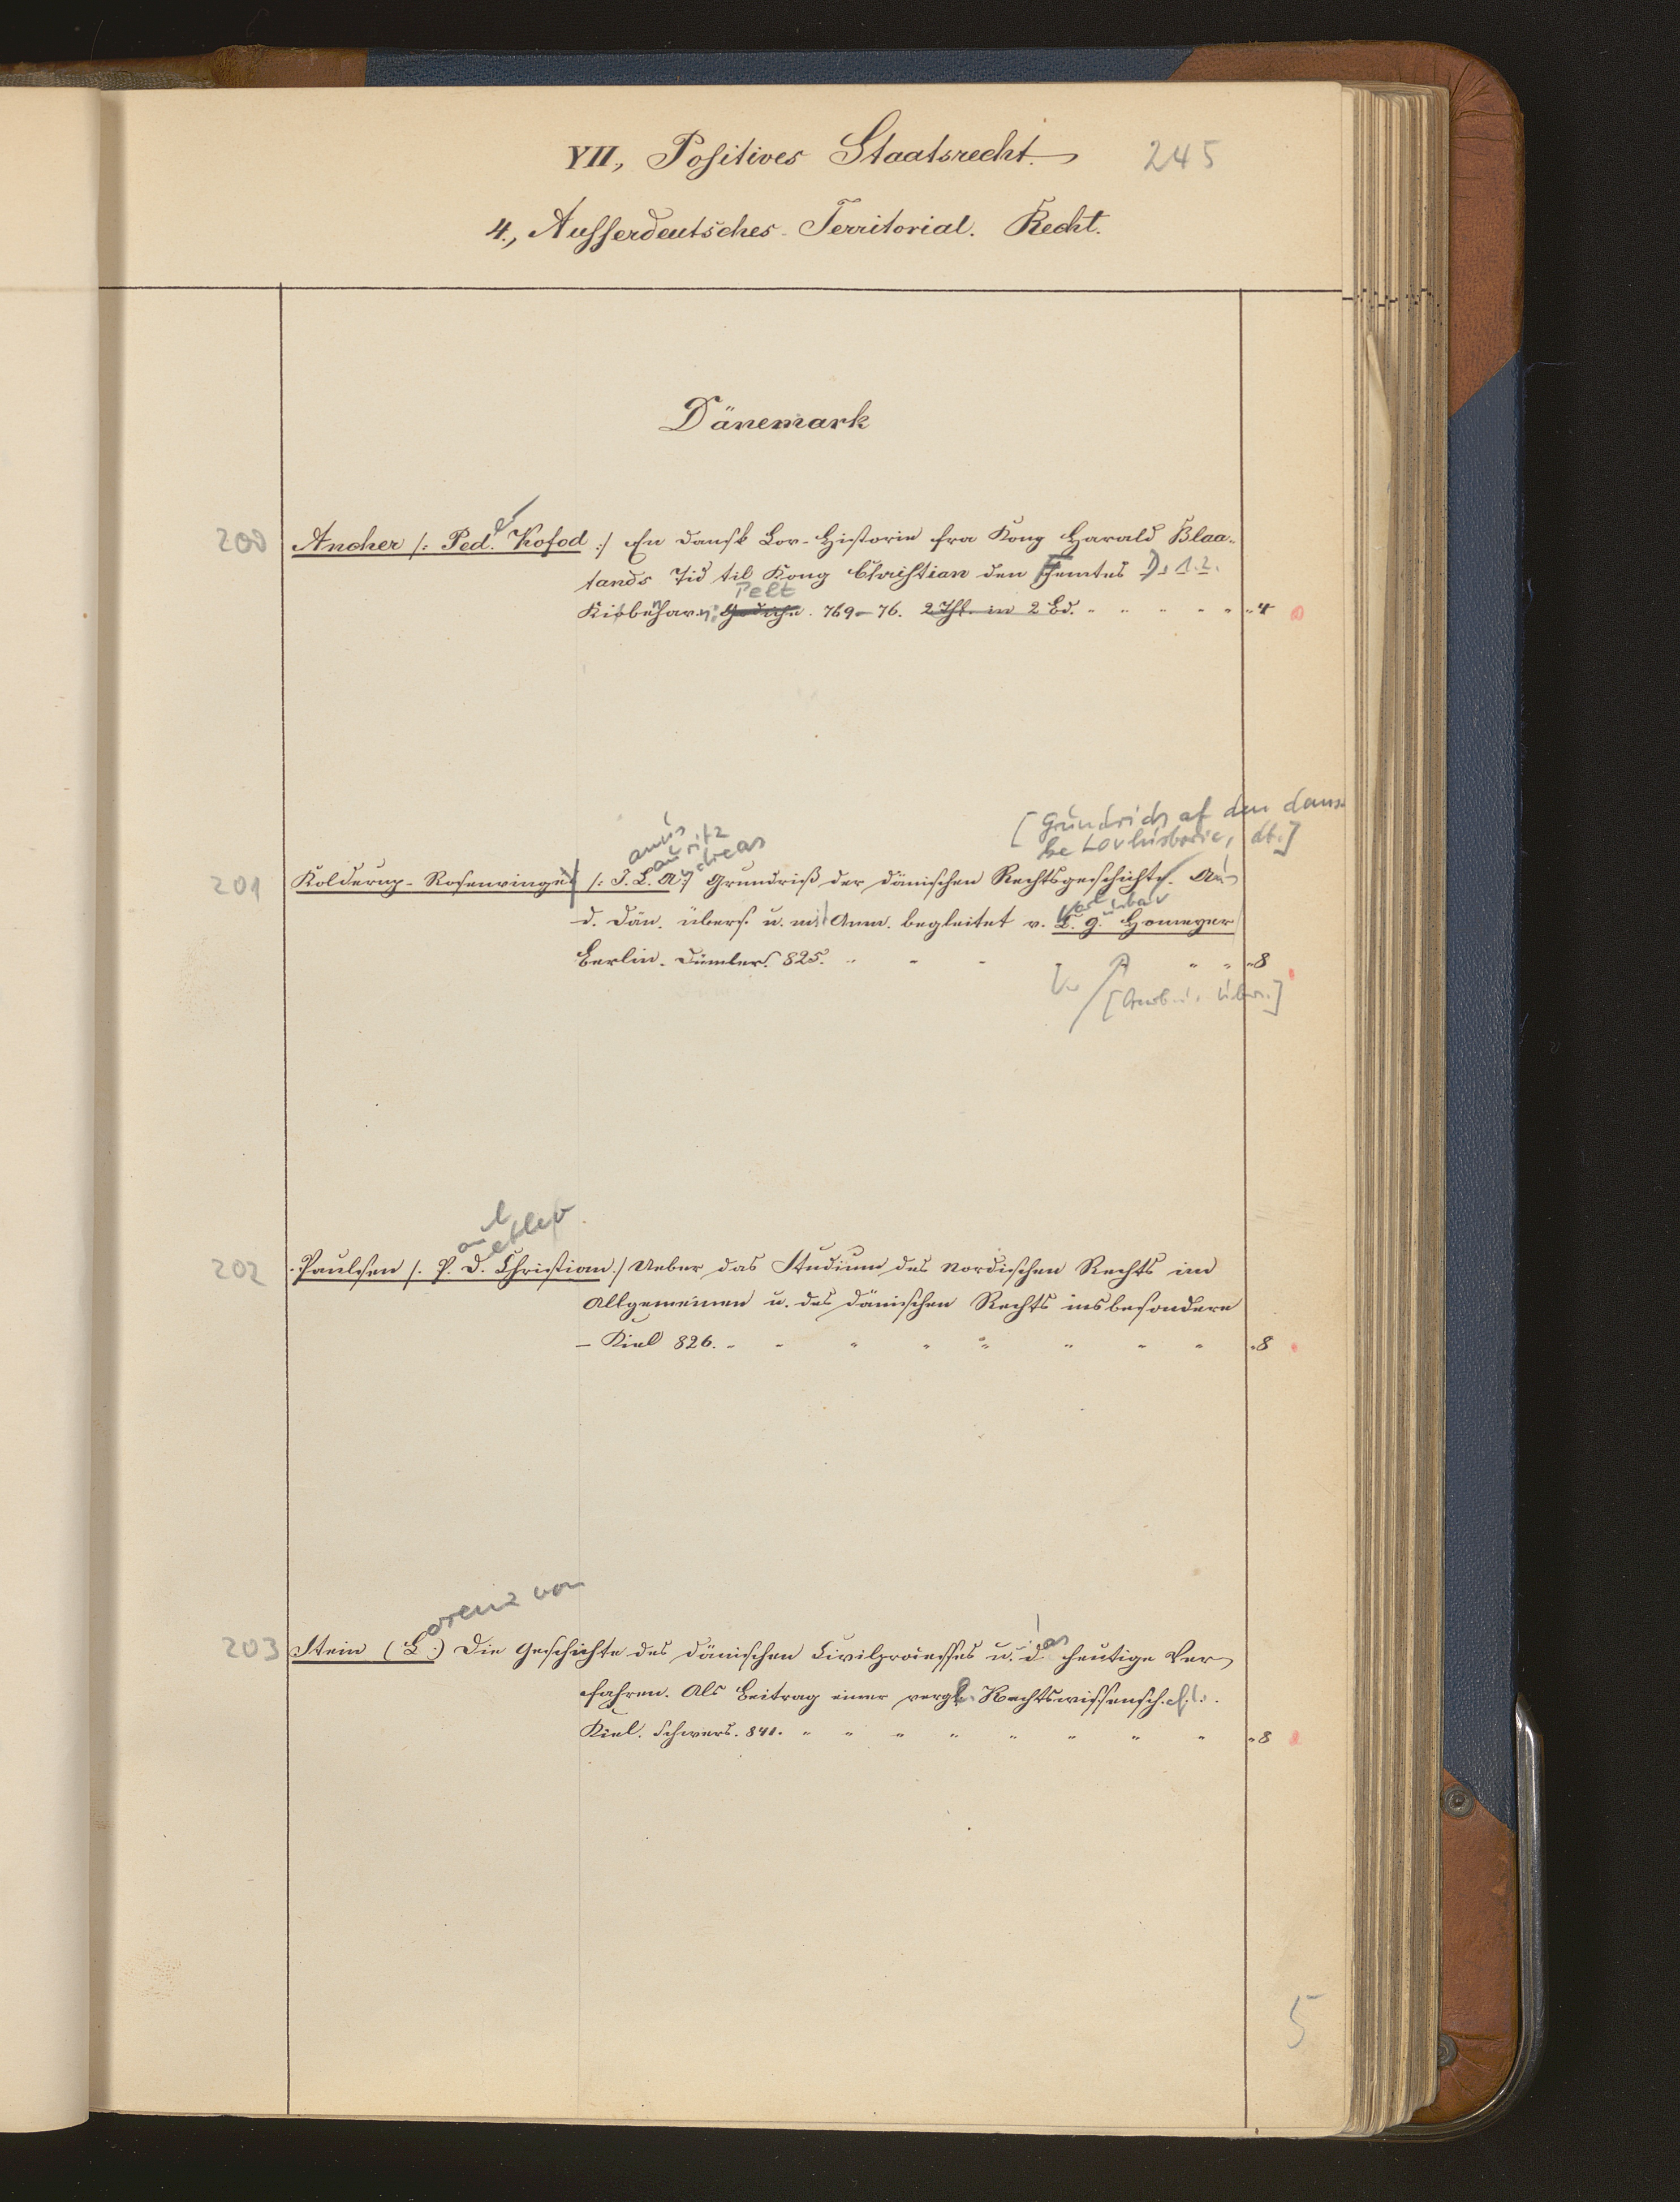 VII, Positives Staatsrecht. 245
4., Ausserdeutsches Territorial. Recht.
Dänemark
200 Ancher /: Ped. er Kofod :/ En dansk Lov-Historie fra Kong Harald Blaa-
tands Tid til Kong Christian den Femtes D. 1.2.
Pelt
Kiøbenhavn. 769-76. 2 Thl. in 2 Bd. " " " " " " 4
[Grundrids af den dans-
ke Lovhistorie, dt.]
anus auritz ndreas
201 Kolderup-Rosenvinge /: J. L. A :/ Grundriß der dänischen Rechtsgeschichte. Aus
d. Dän. übers. u. mit Anm. begleitet v. C. G. Homeyer
Berlin. Dümler. 825. " " " " " " 8
aul etlev
202 Paulsen /: P. D. Christian :/ Ueber das Studium des Nordischen Rechts im
Allgemeinen u. des dänischen Rechts insbesondere
– Kiel 826. " " " " " " " " 8
orenz von
203 Stein (L.) Die Geschichte des dänischen Civilprocesses u. das heutige Ver-
fahren. Als Beitrag einer vergl. Rechtswissensch.
Kiel. Schwers. 841. " " " " " " " " 8
5